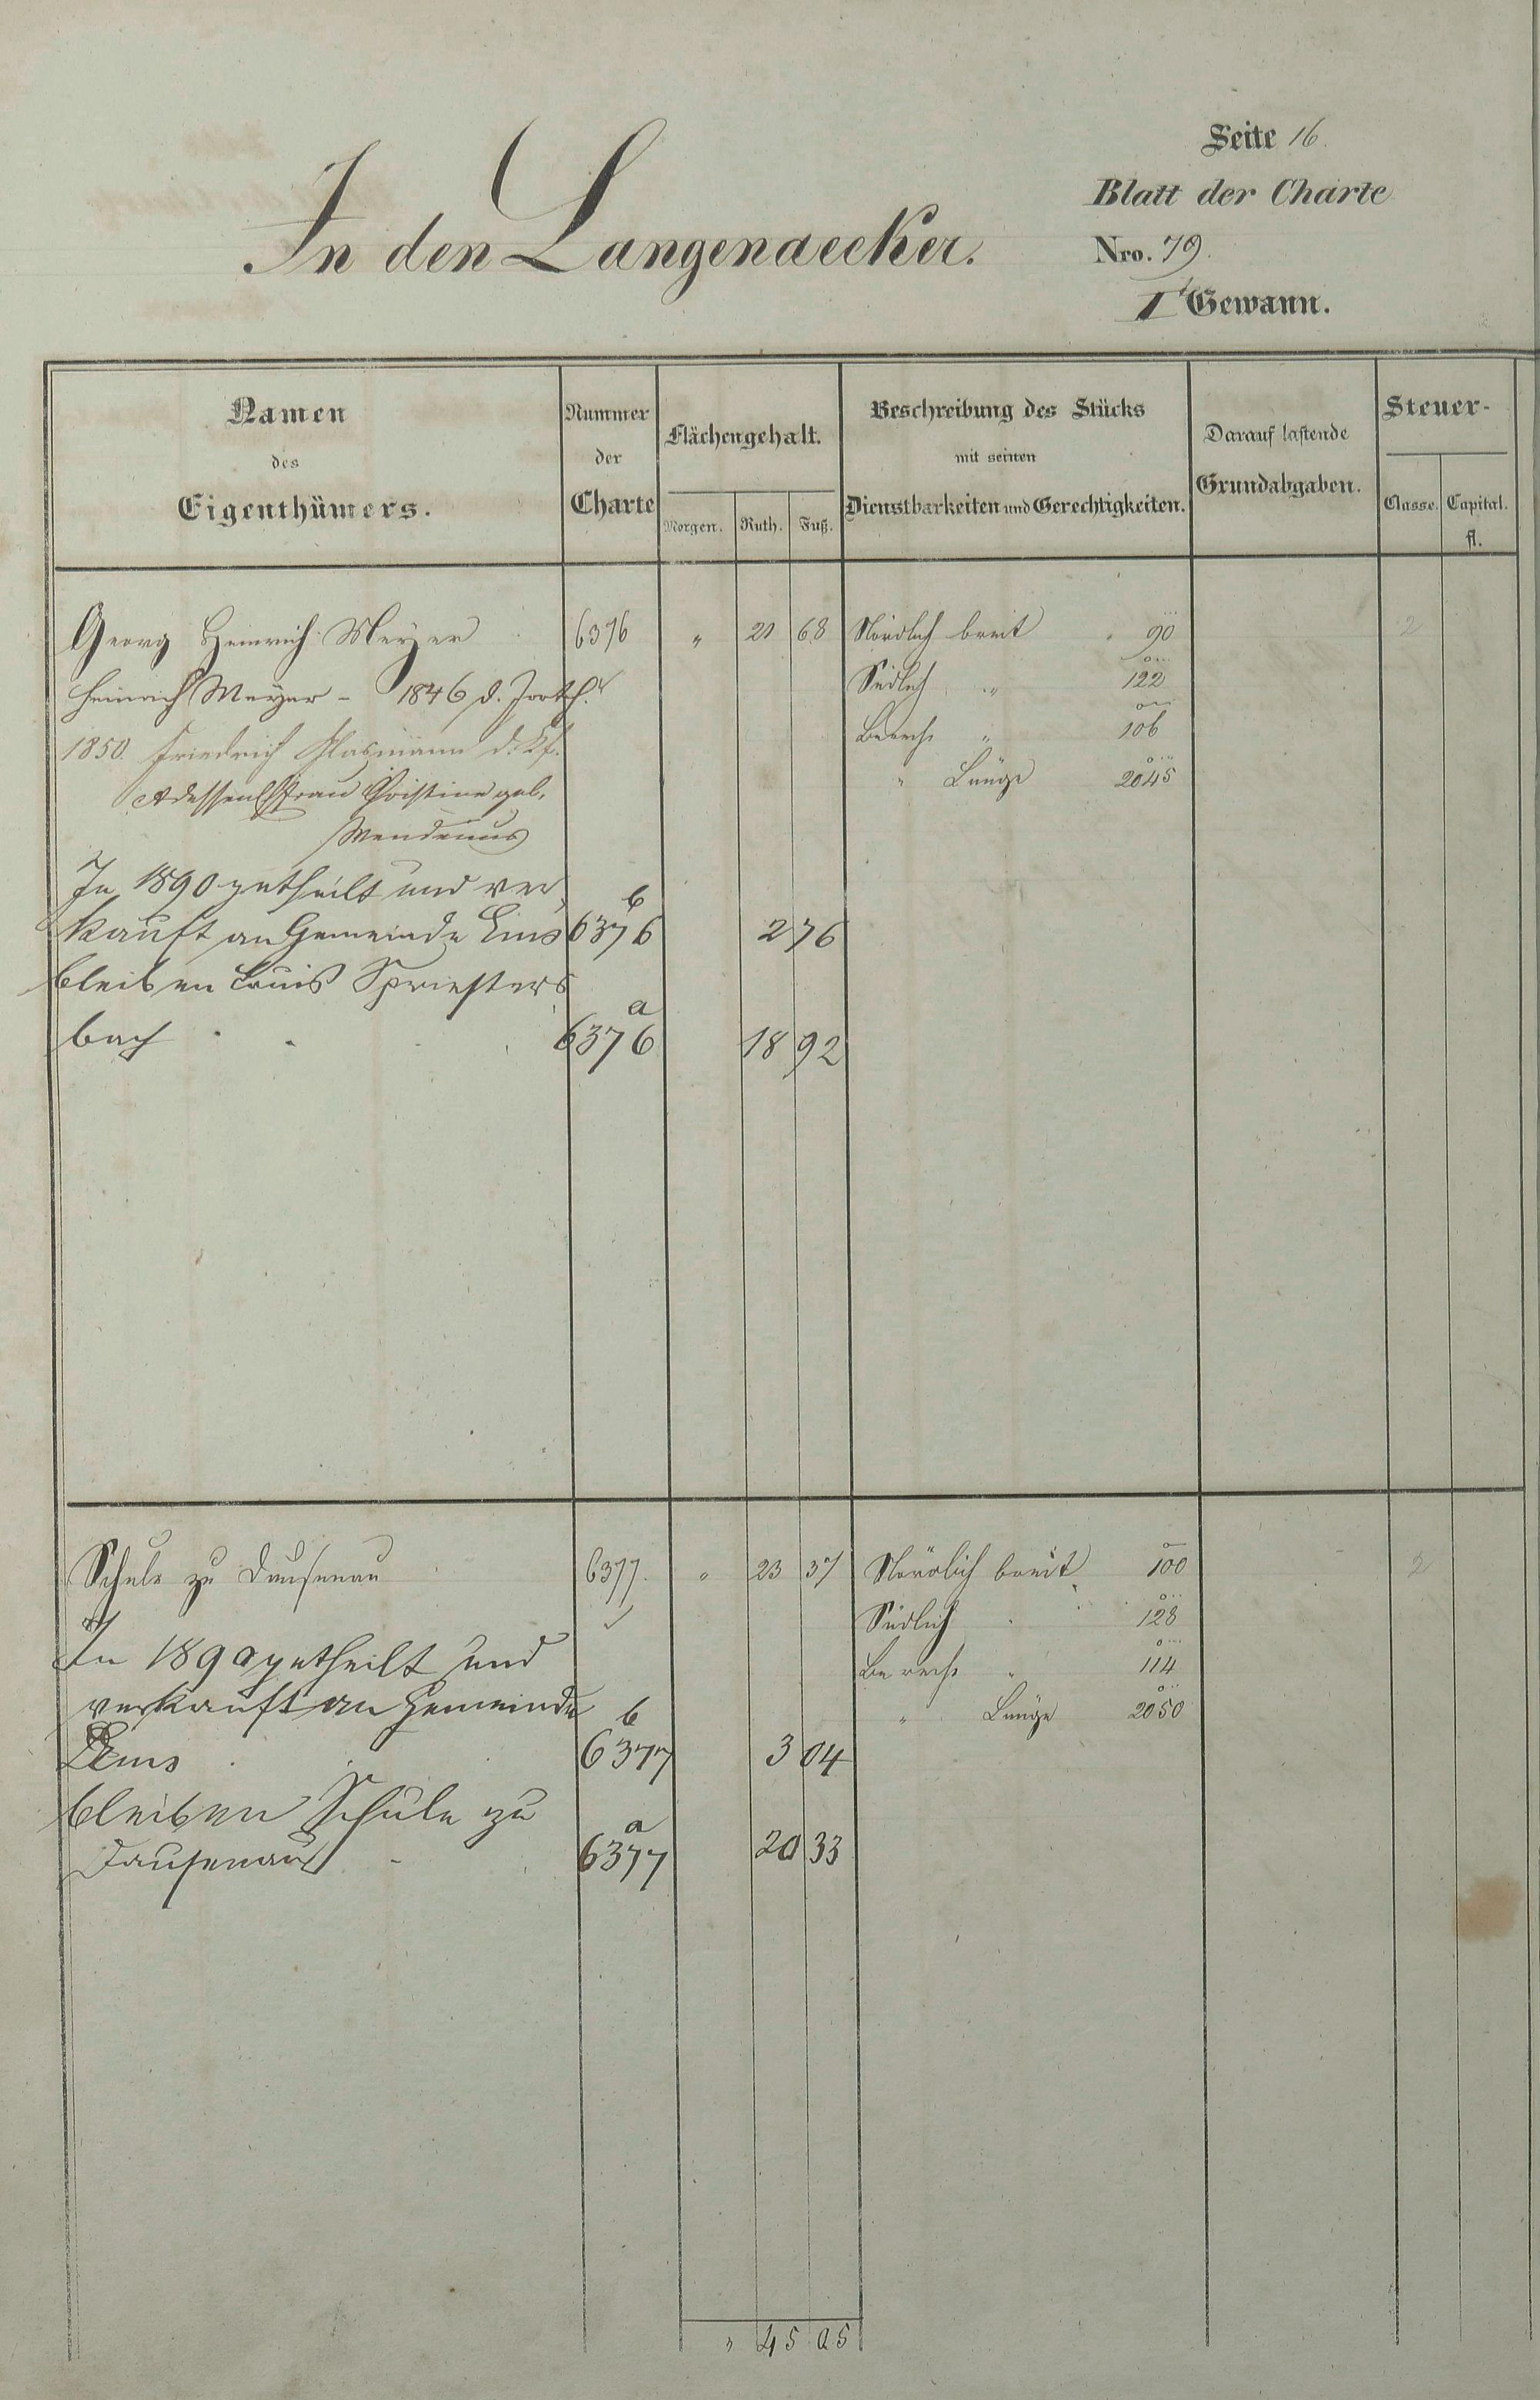 Seite 16.
Blatt der Charte
In den Langenaecker.
Nro. 79.
I Gewann.
Namen
des
Eigenthümers.
Nummer
der
Charte
Flächengehalt.
Morgen. Ruth. Fuß.
Beschreibung des Stücks
mit seinen
Dienstbarkeiten und Gerechtigkeiten.
Darauf lastende
Grundabgaben.
Steuer-
Classe. Capital.
fl.
Georg Heinrich Meyer 6376 " 21 68 Nördlich breit 90 2
Heinrich Meyer - 1846 d. Südlich " 122
1850. Friedrich d. Kf. Berech " 106
" Länge 2045
dessen Ehfrau Christine geb.
In 1890 getheilt und ver
kauft an Gemeinde Ems 6376 b 2 76
bleiben Louis Spriesters
bach 6376 a 18 92
Schule zu Dausenau 6377. " 23 37 Nördlich breit 100 2
Südlich 128
In 1890 getheilt und Berech " 114
verkauft an Gemeinde " Länge 2050
Ems 6377 b 3 04
bleiben Schule zu
Dausenau - 6377 a 20 33
" 45 05